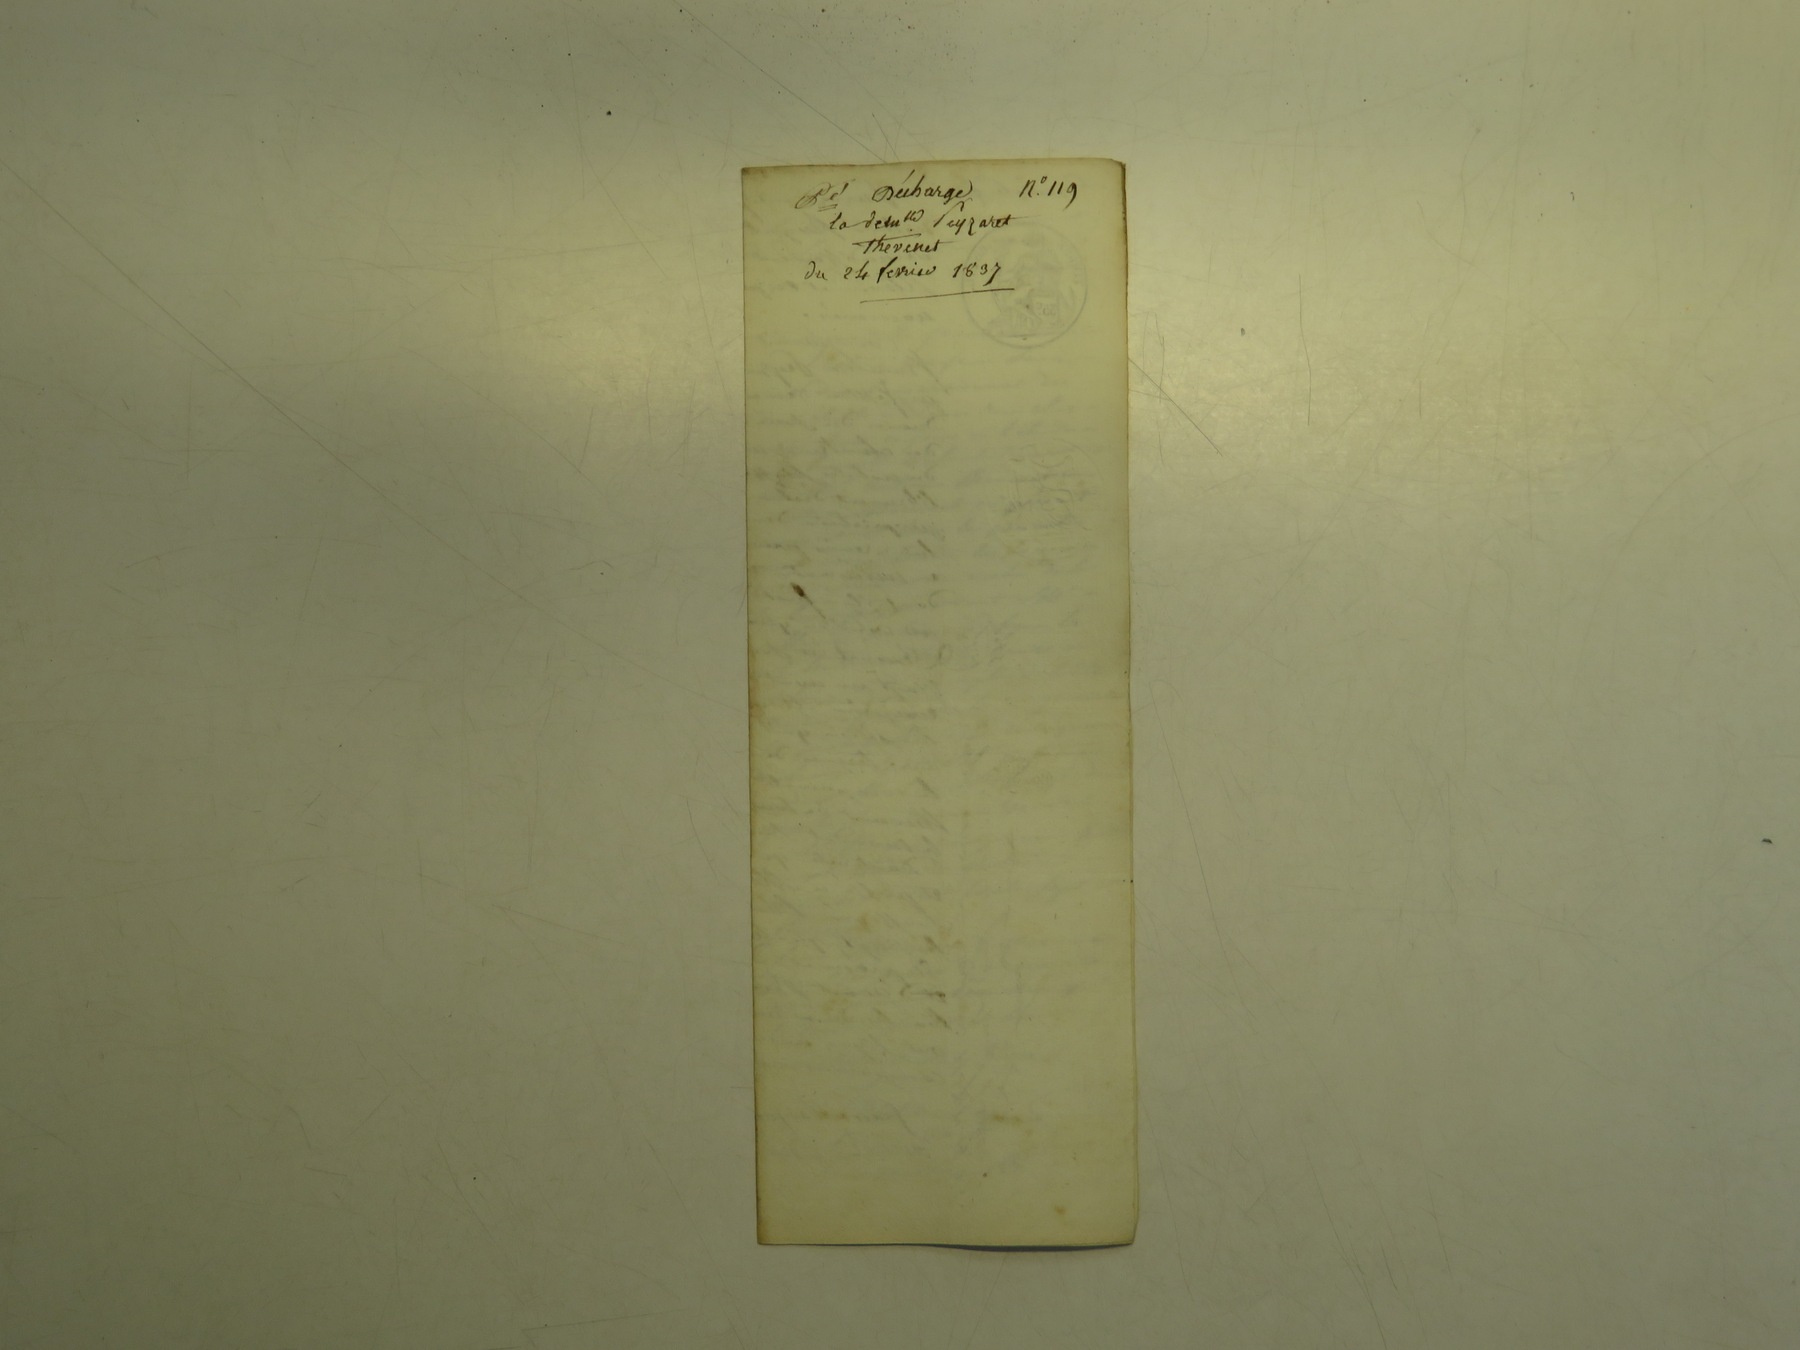 Décharge N.º 119
la dem.lle Peyzaret
Thevenet
du 24 fevrier 1837